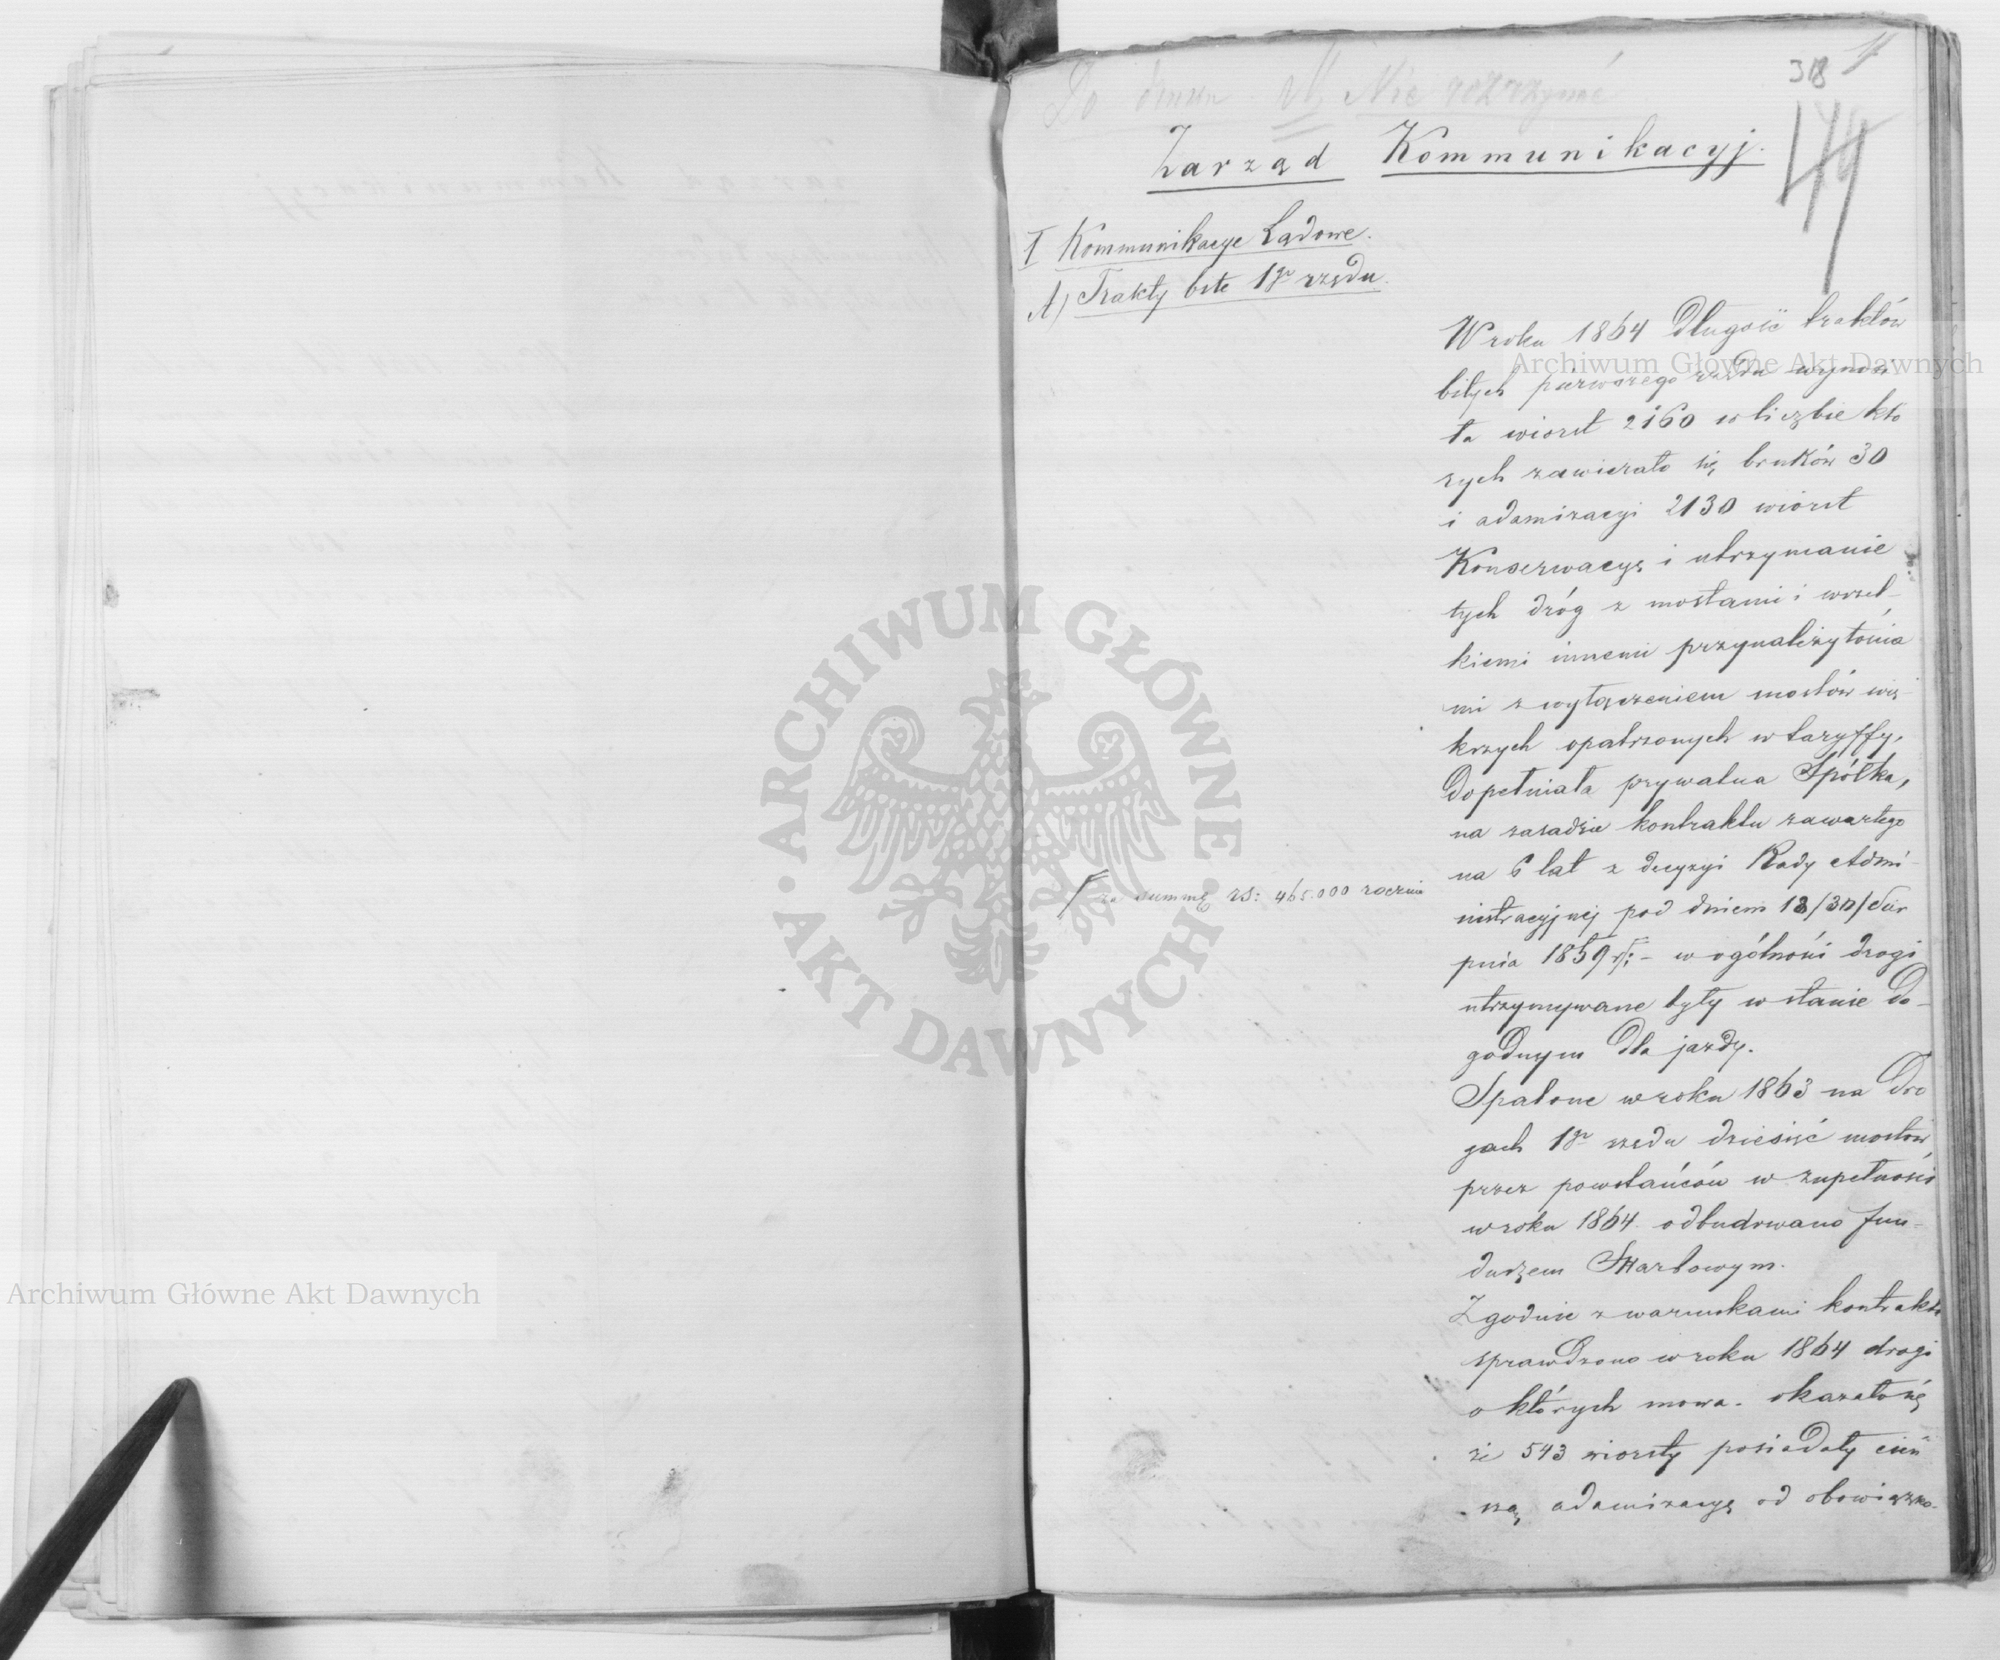 318
Do druku. Nie rozrzynać
Zarząd Kommunikacyj.
149
I Kommunikacye Lądowe.
A) Trakty bite 1go rzędu.
W roku 1864 długość traktów
bitych pierwszego rzędu wynosi
ła wiorst 2160 w liczbie któ
rych zawierało się bruków 30
i adamizacyi 2130 wiorst
Konserwacyę i utrzymanie
tych dróg z mostami i wszel-
kiemi innemi przynależytościa
mi z wyłączeniem mostów wię-
kszych opatrzonych w taryffy,
dopełniała prywatna Spółka,
na zasadzie kontraktu zawartego
na 6 lat z decyzyi Rady Admi-
nistracyjnej pod dniem 18/30/ Sier
pnia 1859 r: - w ogólności drogi
za summę rs: 465.000 rocznie
utrzymywane były w stanie do-
godnym dla jazdy.
Spalone w roku 1863 na dro
gach 1go rzędu dziesięć mostów
przez powstańców w zupełności
w roku 1864 odbudowano fun-
duszem Skarbowym.
Zgodnie z warunkami kontraktu
sprawdzono w roku 1864 drogi
o których mowa. okazało się
że 543 wiorsty posiadały cień
szą adamizacyę od obowiązko-
Archiwum Główne Akt Dawnych
Archiwum Główne Akt Dawnych
ARCHIWUM GŁÓWNE · AKT DAWNYCH ·